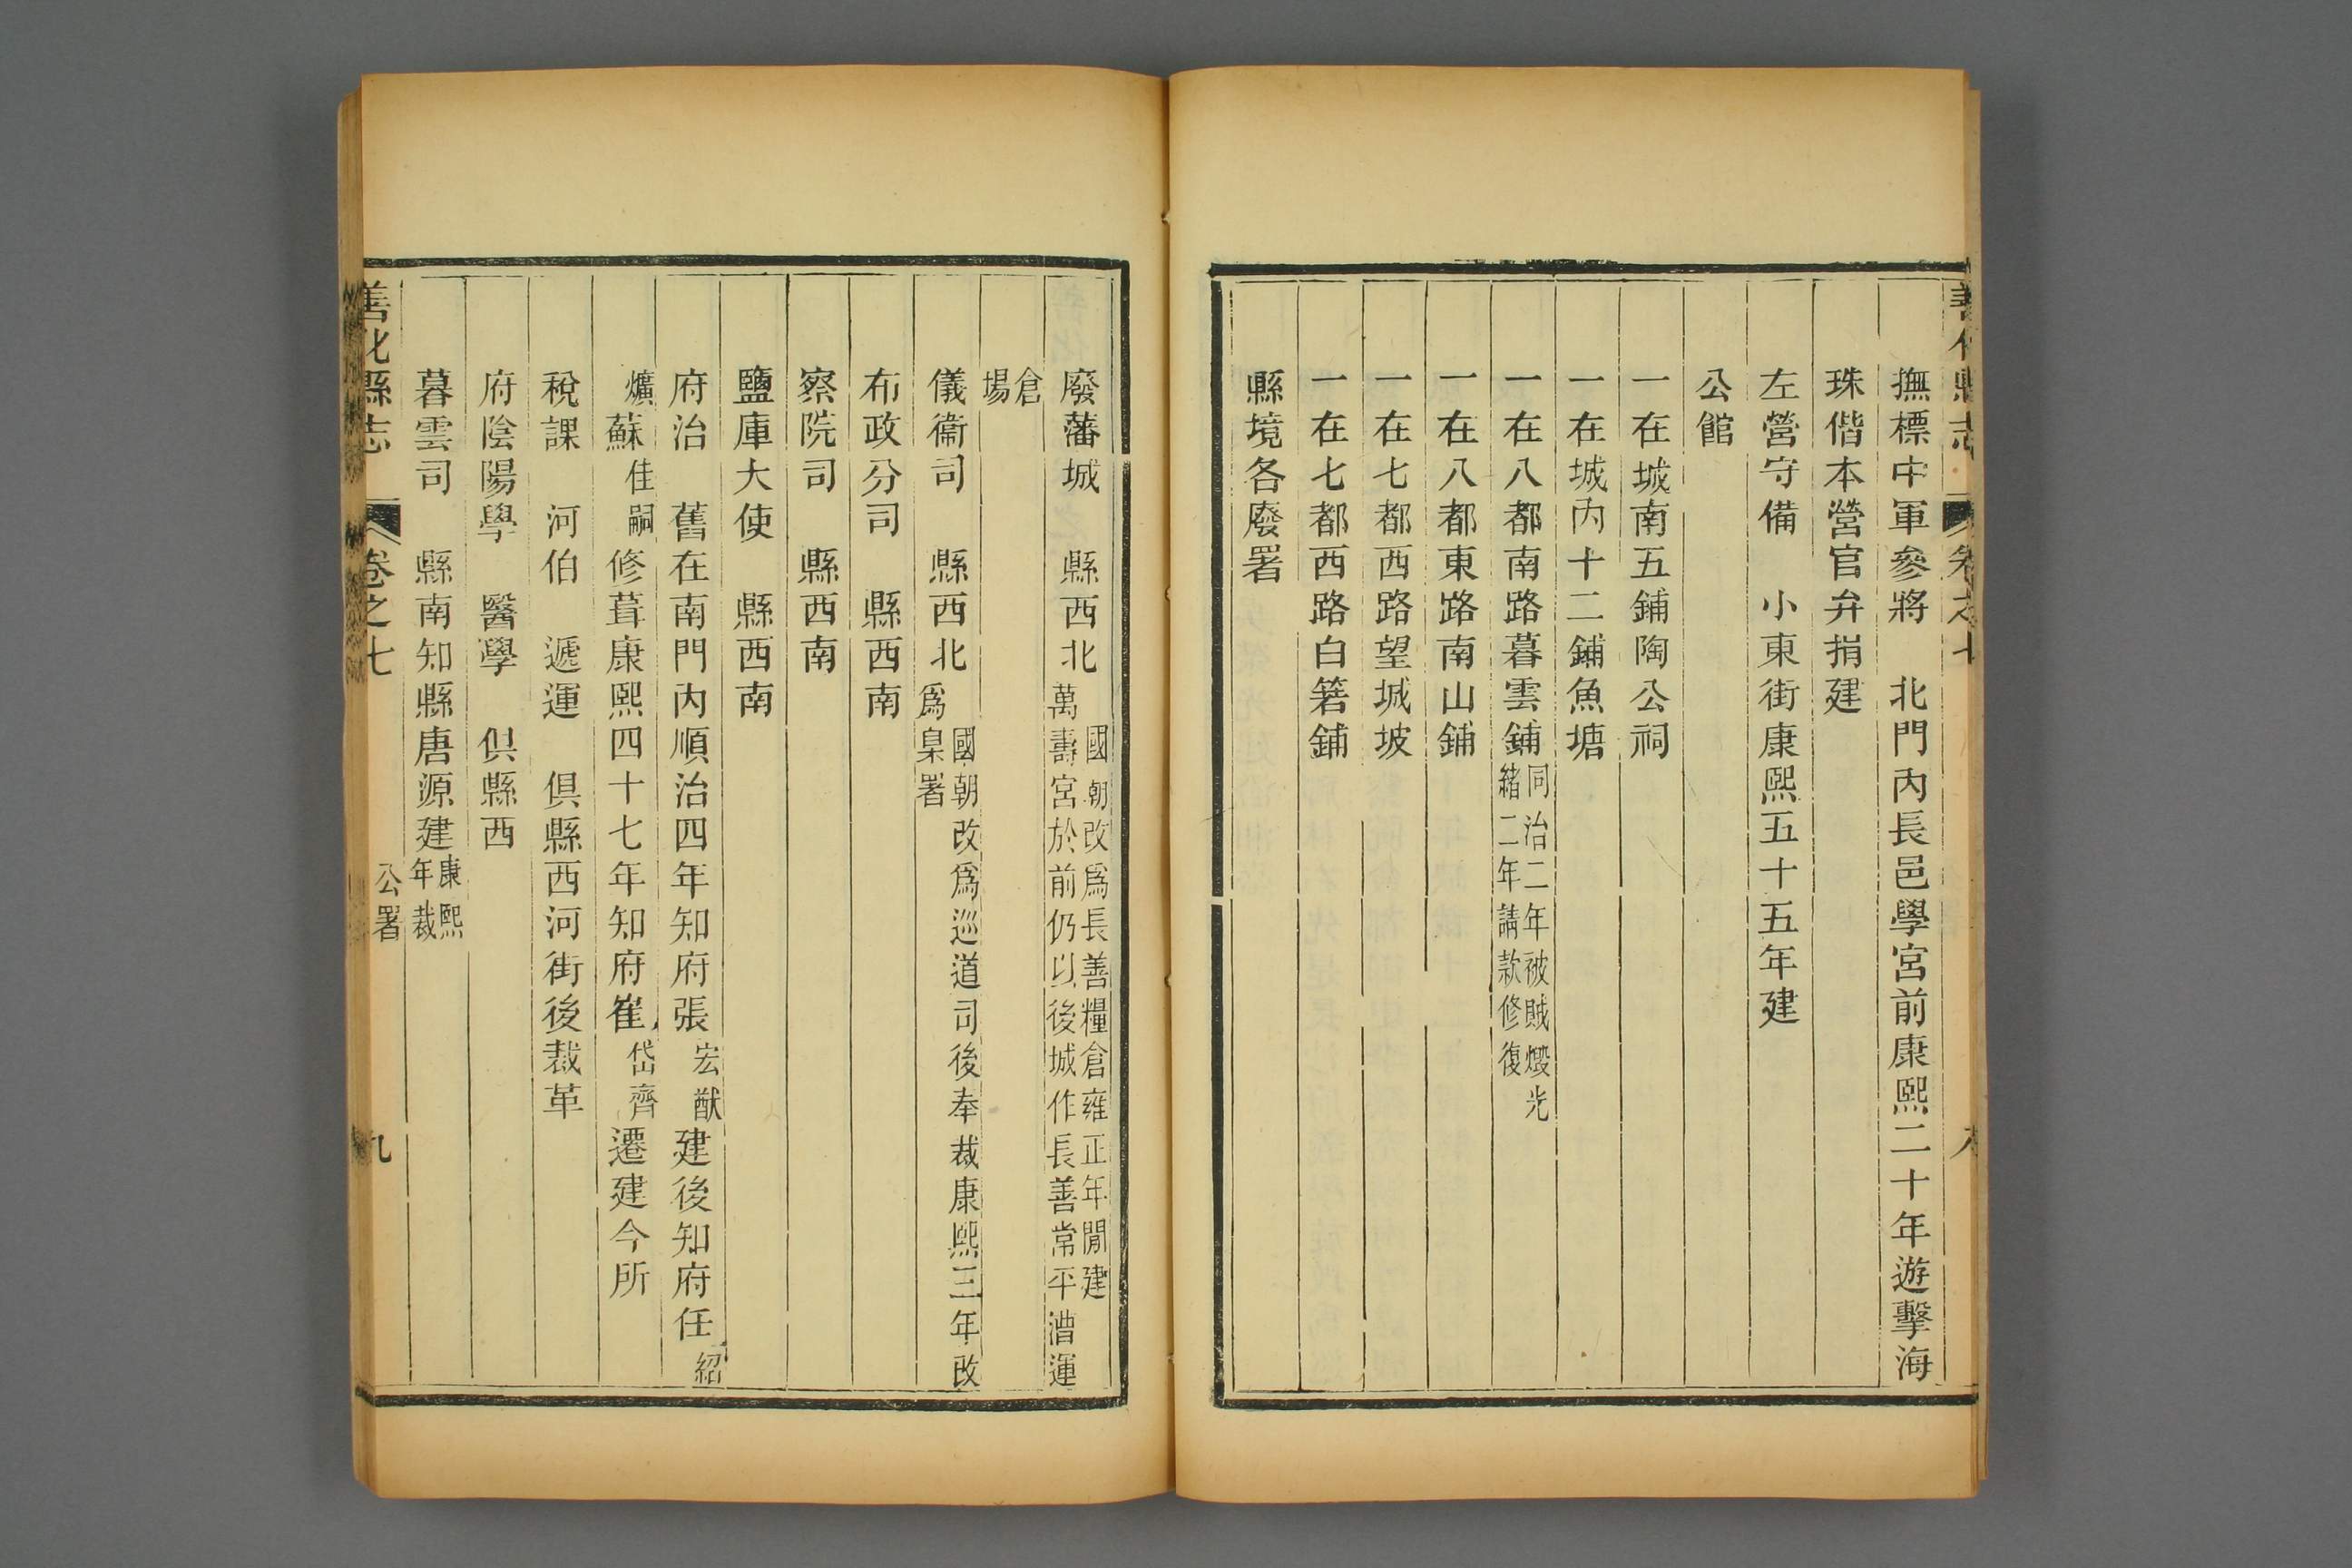 撫標中軍參將　北門內長邑學宮前康熙二十年遊擊海
珠偕本營官弁捐建
左營守備　小東街康熙五十五年建
公館
一在城南五鋪陶公祠
一在城內十二鋪魚塘
一在八都南路暮雲鋪同治二年被賊燬光
緒二年請款修復
一在八都東路南山鋪
一在七都西路望城坡
一在七都西路白箬鋪
縣境各廢署
廢藩城　縣西北國朝改爲長善糧倉雍正年閒建
萬壽宮於前仍以後城作長善常平漕運
倉
場
儀衞司　縣西北國朝改爲巡道司後奉裁康熙三年改
爲臬署
布政分司　縣西南
察院司　縣西南
鹽庫大使　縣西南
府治　舊在南門內順治四年知府張宏猷建後知府任紹
爌蘇佳嗣修葺康熙四十七年知府崔岱齊遷建今所
稅課　河伯　遞運　俱縣西河街後裁革
府陰陽學　醫學　俱縣西
暮雲司　縣南知縣唐源建康熙
年裁
善化縣志　卷之七　公署　九